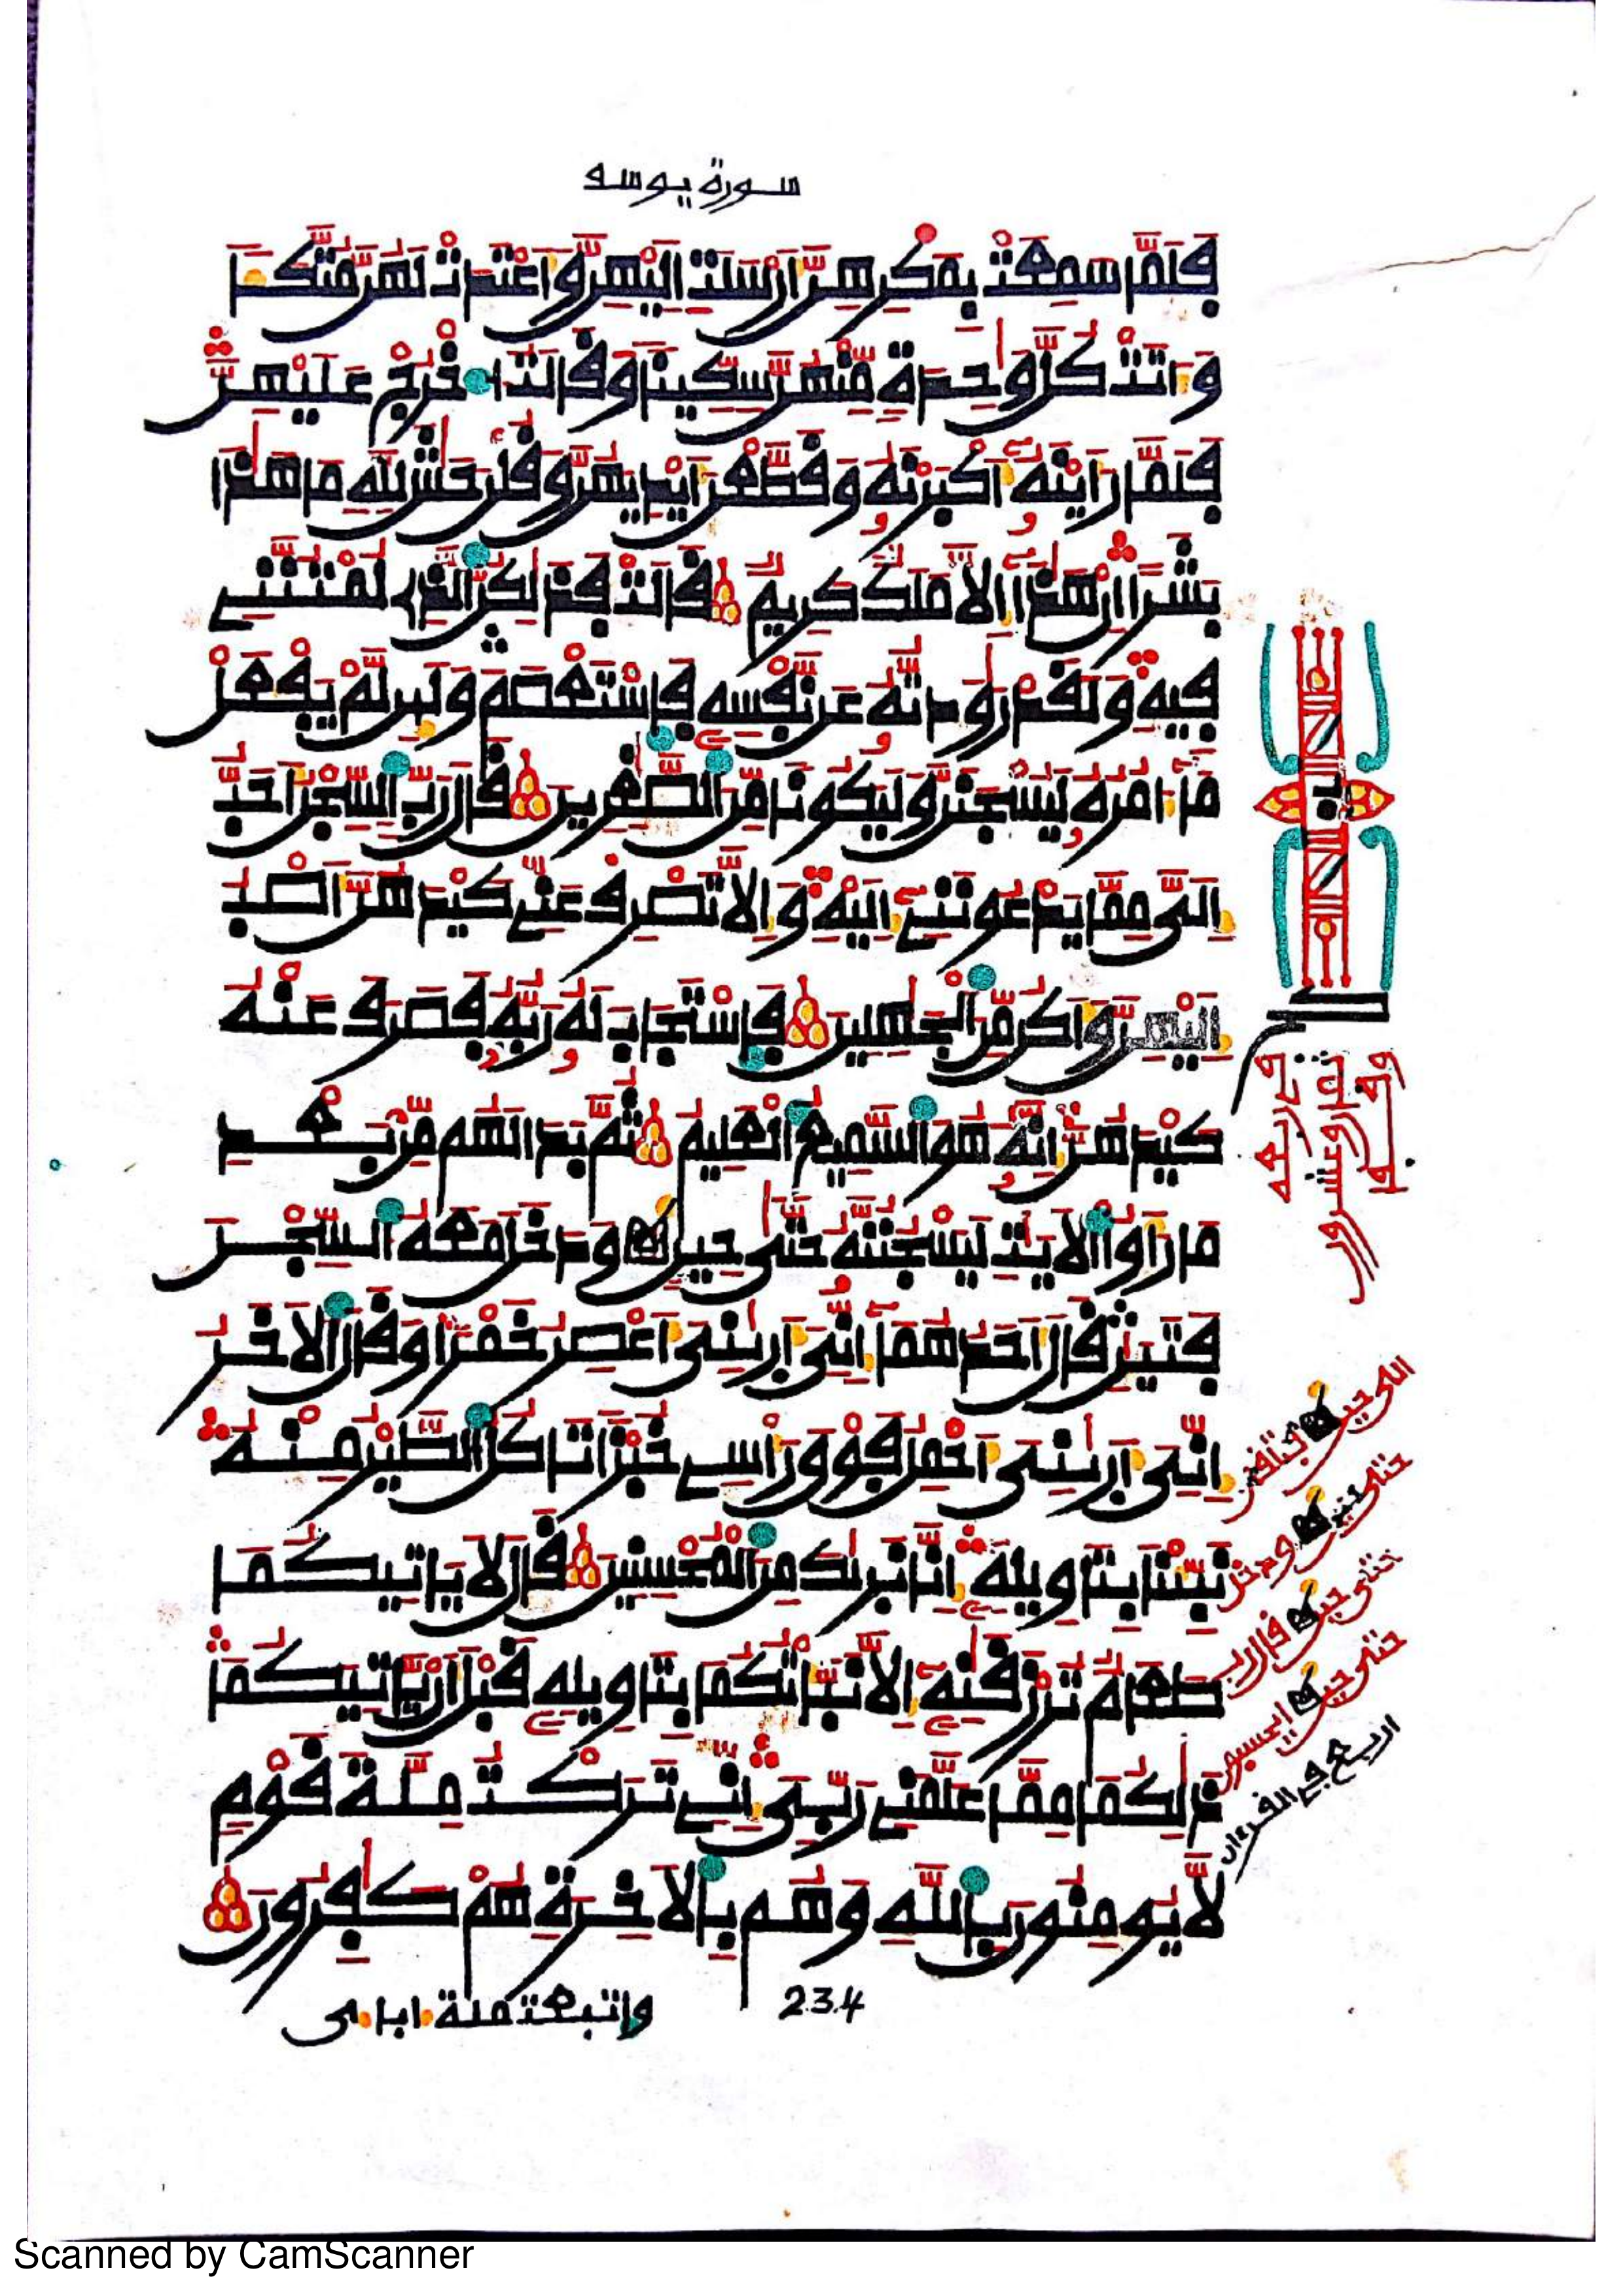 سورة يوسف
فَلَمَّا سَمِعَتْ بِمَكْرِهِنَّ أَرْسَلَتِ اِلَيْهِنَّ وَأَعْتَدَتْ لَهُنَّ مُتَّكَـًٔا
وَءَاتَتْ كُلَّ وَٰحِدَةٍ مِّنْهُنَّ سِكِّينًا وَقَالَتُ اخْرُجْ عَلَيْهِنَّ
فَلَمَّا رَأَيْنَهُۥٓ أَكْبَرْنَهُۥ وَقَطَّعْنَ أَيْدِيَهُنَّ وَقُلْنَ حَٰشَ لِلهِ مَا هَٰذَا
بَشَرًا اِنْ هَٰذَآ إِلَّا مَلَكٌ كَرِيمٌ قَالَتْ فَذَٰلِكُنَّ الذِے لُمْتُنَّنِے
فِيهِ وَلَقَدْ رَٰوَدتُّهُۥ عَن نَّفْسِهِۦ فَاسْتَعْصَمَ وَلَئِن لَّمْ يَفْعَلْ
مَآ ءَامُرُهُۥ لَيُسْجَنَنَّ وَلَيَكُونًا مِّنَ الصَّٰغِرِينَ قَالَ رَبِّ السِّجْنُ أَحَبُّ
إِلَىَّ مِمَّا يَدْعُونَنِےٓ إِلَيْهِ وَإِلَّا تَصْرِفْ عَنِّے كَيْدَهُنَّ أَصْبُ
إِلَيْهِنَّ وَأَكُن مِّنَ الْجَٰهِلِينَ فَاسْتَجَابَ لَهُۥ رَبُّهُۥ فَصَرَفَ عَنْهُ
كَيْدَهُنَّ إِنَّهُۥ هُوَ السَّمِيعُ الْعَلِيمُ ثُمَّ بَدَا لَهُم مِّنۢ بَعْدِ
مَا رَأَوُاْ الْأَيَٰتِ لَيَسْجُنُنَّهُۥ حَتَّىٰ حِينٍ وَدَخَلَ مَعَهُ السِّجْنَ
فَتَيَٰنِ قَالَ أَحَدُهُمَآ إِنِّىٓ أَرَىٰنِىٓ أَعْصِرُ خَمْرًا وَقَالَ الْأَخَرُ
إِنِّىٓ أَرَىٰنِىٓ أَحْمِلُ فَوْقَ رَأْسِے خُبْزًا تَاكُلُ الطَّيْرُ مِنْهُ
نَبِّئْنَا بِتَاوِيلِهِۦٓ إِنَّا نَرَىٰكَ مِنَ الْمُحْسِنِينَ قَالَ لَا يَاتِيكُمَا
طَعَامٌ تُرْزَقَٰنِهِۦٓ إِلَّا نَبَّأْتُكُمَا بِتَاوِيلِهِۦ قَبْلَ أَنْ يَّاتِيَكُمَا
ذَٰلِكُمَا مِمَّا عَلَّمَنِے رَبِّىٓ إِنِّے تَرَكْتُ مِلَّةَ قَوْمٍ
لَّا يُومِنُونَ بِاللهِ وَهُم بِالْأَخِرَةِ هُمْ كَٰفِرُونَ
واتبعت ملة ءاباءى
234
حتى حين
ودخل
حتى حين
قال رب
حتى حين
ايحسبون
اربع في القرءان
Scanned by CamScanner